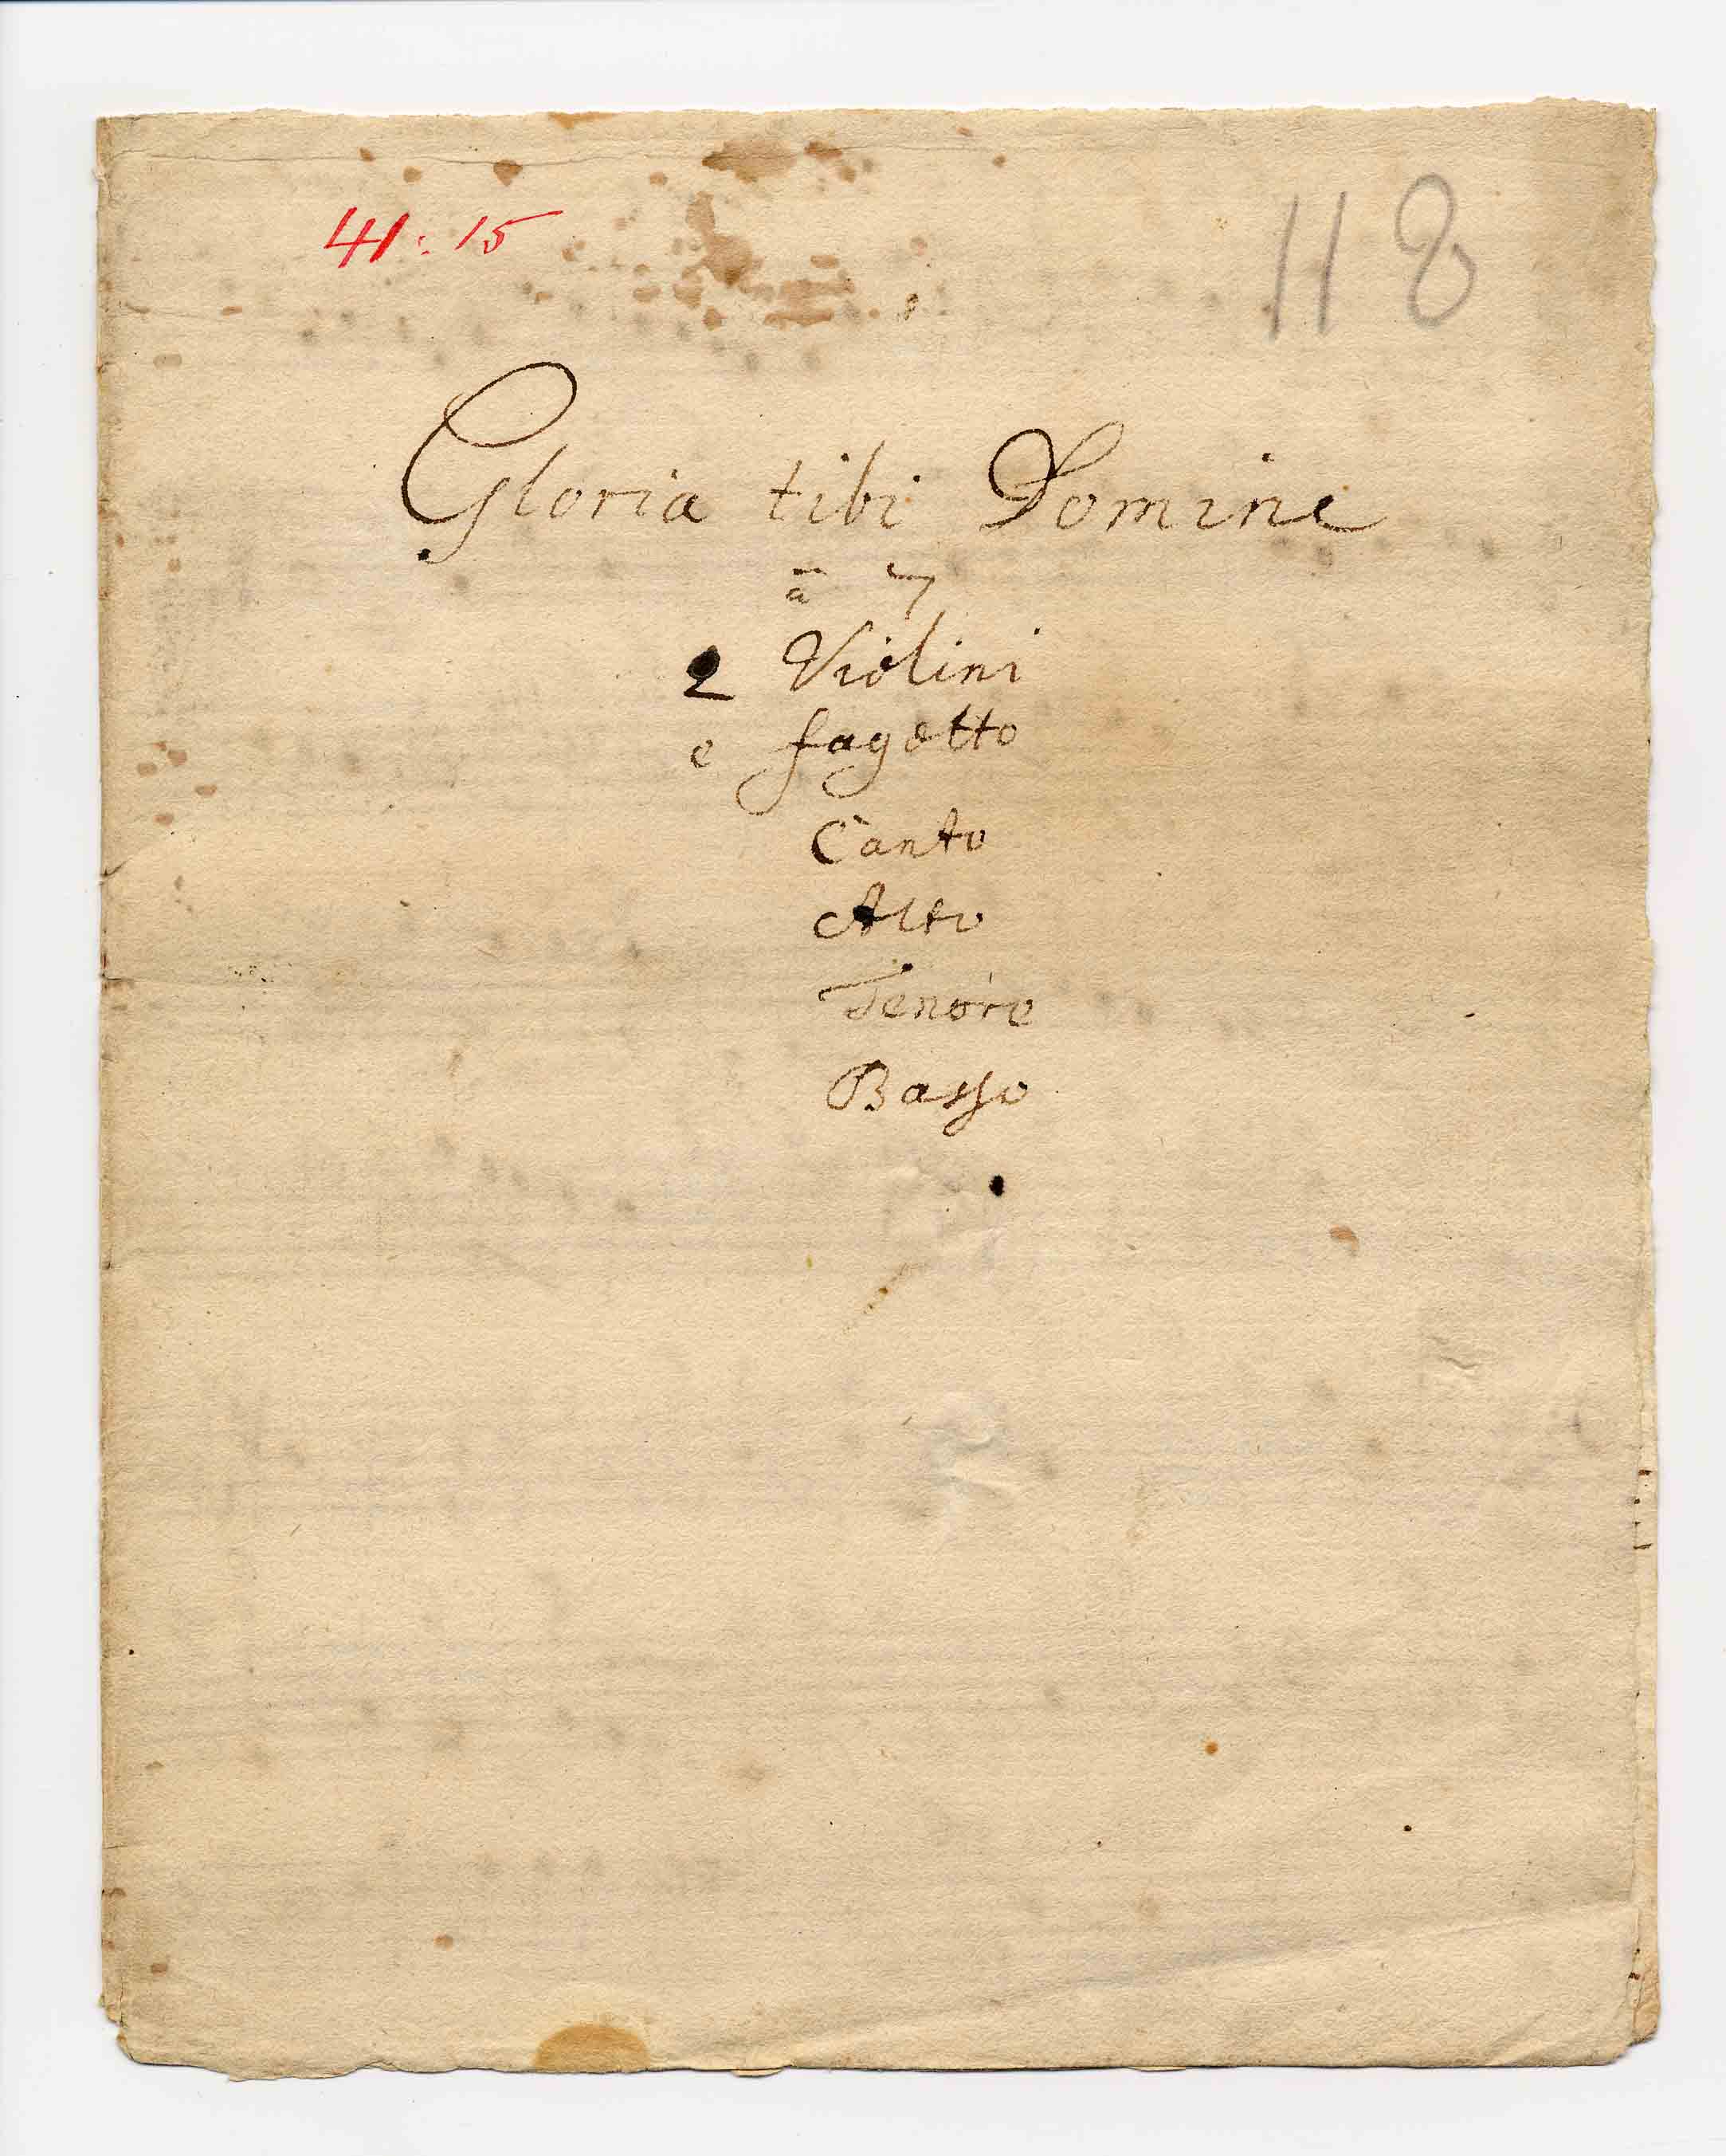 41: 15
118
Gloria tibi Domine
ā 7
2 Violini
e fagotto
Canto
Alto
Tenore
Basso